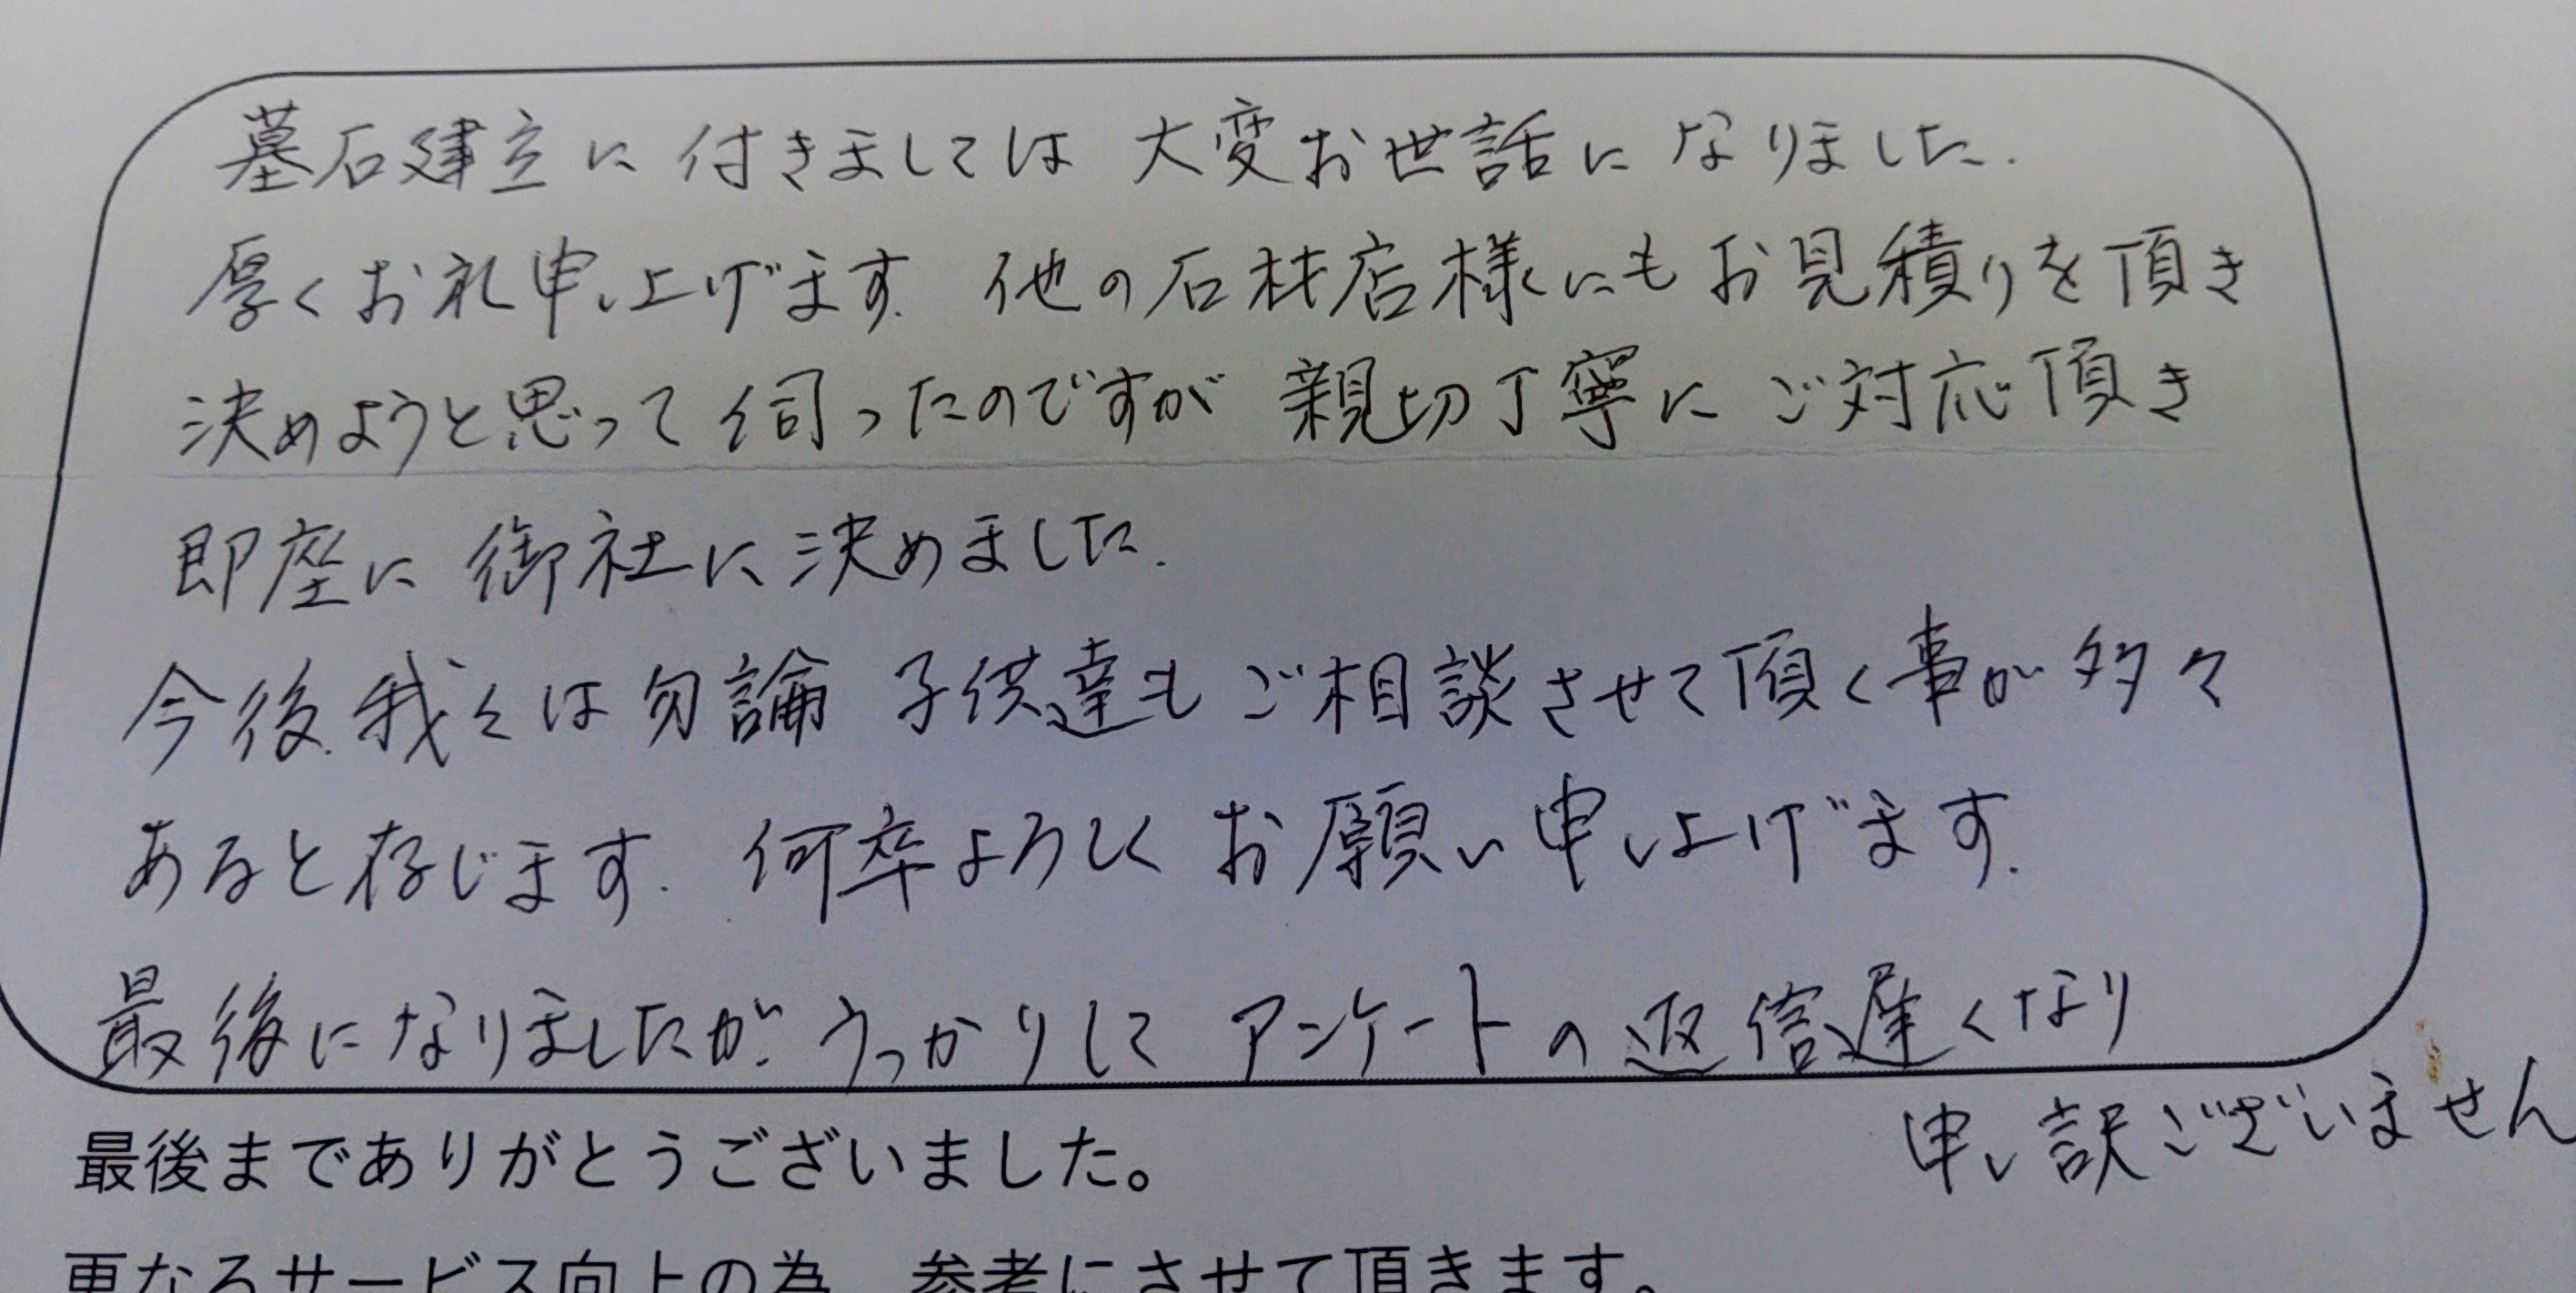 墓石建立に付きましては 大変お世話になりました.
厚くお礼申し上げます. 他の石材店様にもお見積りを頂き
決めようと思って伺ったのですが 親切丁寧にご対応頂き
即座に御社に決めました.
今後、我々は勿論 子供達もご相談させて頂く事が多々
あると存じます. 何卒よろしくお願い申し上げます.
最後になりましたが、うっかりして アンケートの返信遅くなり
申し訳ございません
最後までありがとうございました。
更なるサービス向上の為、参考にさせて頂きます。